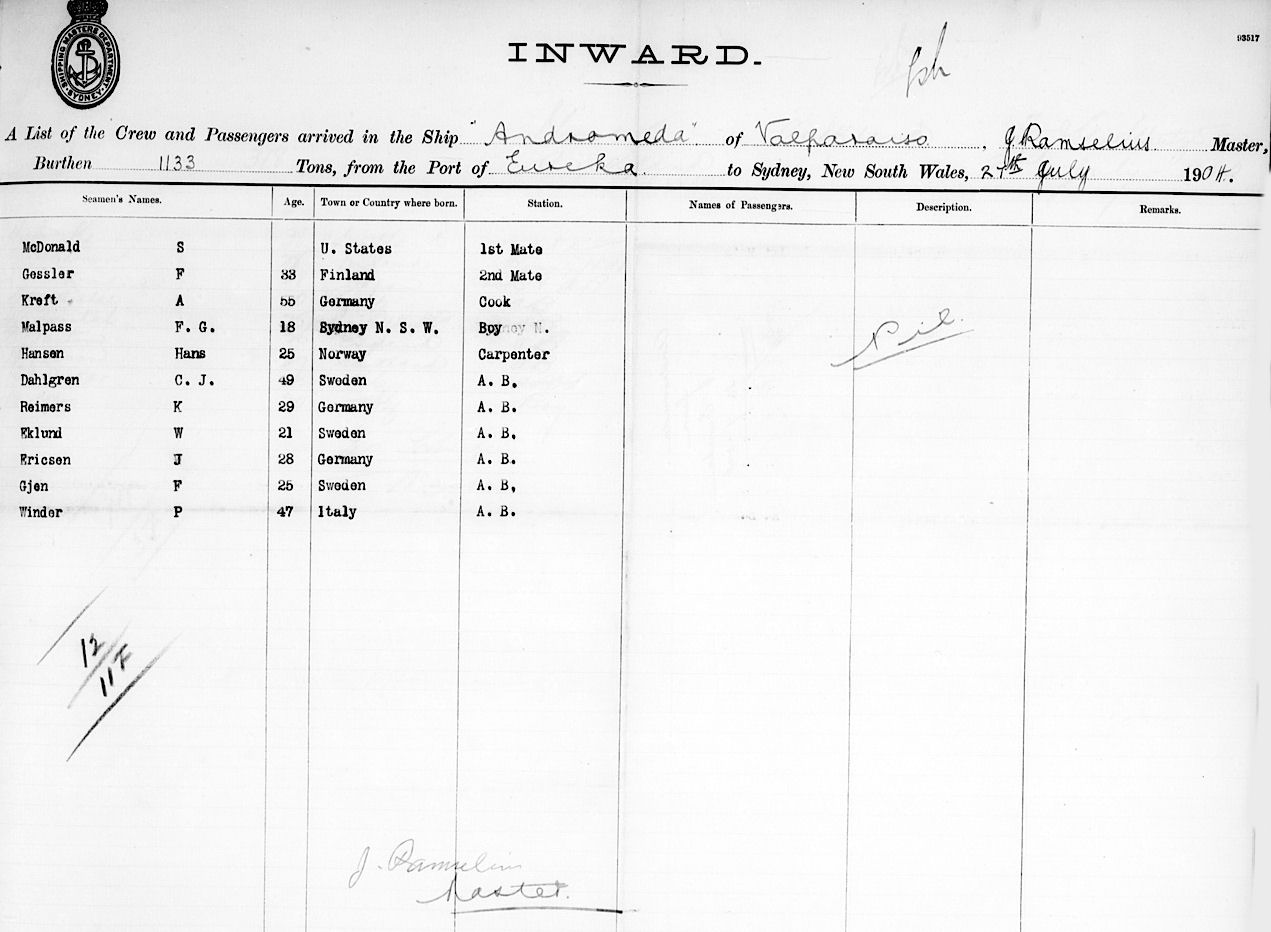 SHIPPING MASTERS DEPARTMENT
SYDNEY
93517
INWARD.
A List of the Crew and Passengers arrived in the Ship "Andromeda" of Valparaiso, J Ramselius Master,
Burthen 1133 Tons, from the Port of Eureka to Sydney, New South Wales, 27th July 1904.
Seamen's Names. Age. Town or Country where born. Station. Names of Passengers. Description. Remarks.
McDonald S U. States 1st Mate
Gessler F 33 Finland 2nd Mate
Kreft A 55 Germany Cook
Malpass F. G. 18 Sydney N. S. W. Boy
Hansen Hans 25 Norway Carpenter
Nil.
Dahlgren C. J. 49 Sweden A. B.
Reimers K 29 Germany A. B.
Eklund W 21 Sweden A. B.
Ericsen J 28 Germany A. B.
Gjen F 25 Sweden A. B,
Winder P 47 Italy A. B.
12
11F
J. Ramselius
Master.